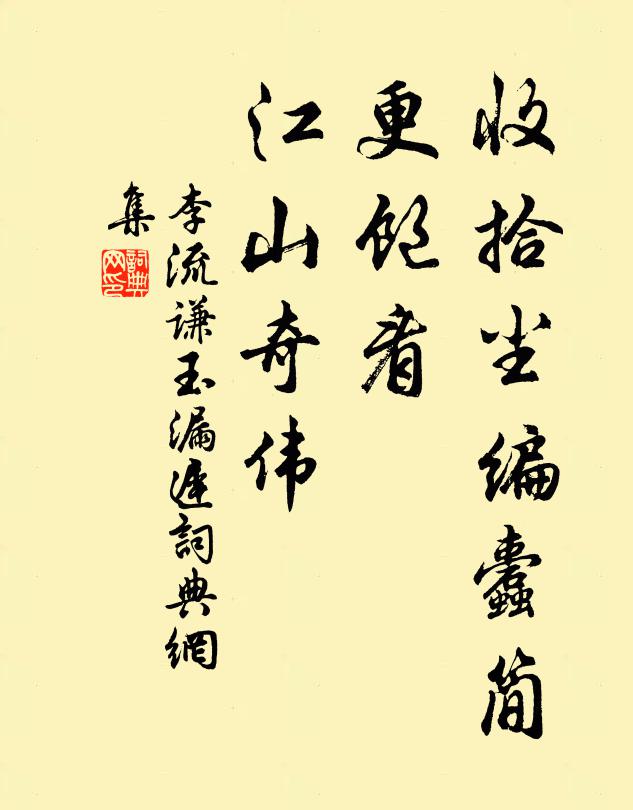 收拾尘编蠹简
更饱看
江山奇伟
李流谦玉漏迟詞典網
集
詞典
网印